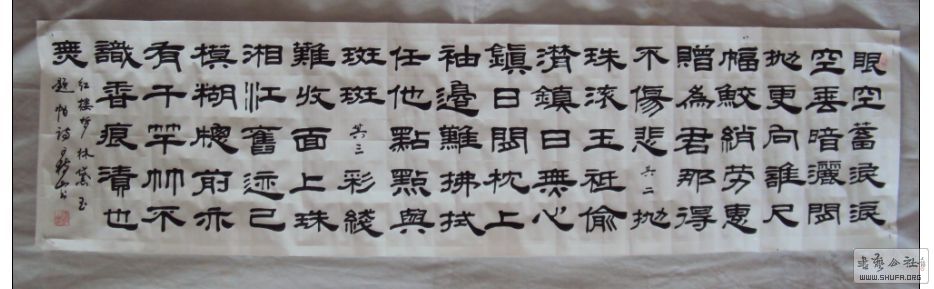 眼空蓄淚淚
空垂暗灑閒
抛更向誰尺
幅鮫綃劳惠
贈為君那得
不傷悲 其二 抛
珠滚玉祗偷
潸鎮日無心
鎮日閒枕上
袖邊難拂拭
任他點點與
斑斑 其三 彩綫
難收面上珠
湘江舊迹已
模糊窓前亦
有千竿竹不
識香痕漬也
無
红楼梦林黛玉
题帕詩
书艺公社
WWW.SHUFA.ORG